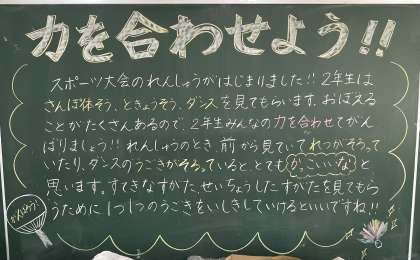 力を合わせよう!!
スポーツ大会のれんしゅうがはじまりました!! 2年生は
さんぽ体そう、ときょうそう、ダンスを見てもらいます。おぼえる
ことがたくさんあるので、2年生みんなの力を合わせてがん
ばりましょう!! れんしゅうのとき、前から見ていてれつがそろってい
たり、ダンスのうごきがそろっていると、とても「かっこいいな」と
思います。すてきなすがた、せいちょうしたすがたを見てもら
うために1つ1つのうごきをいしきしていけるといいですね!!
がんばろう!